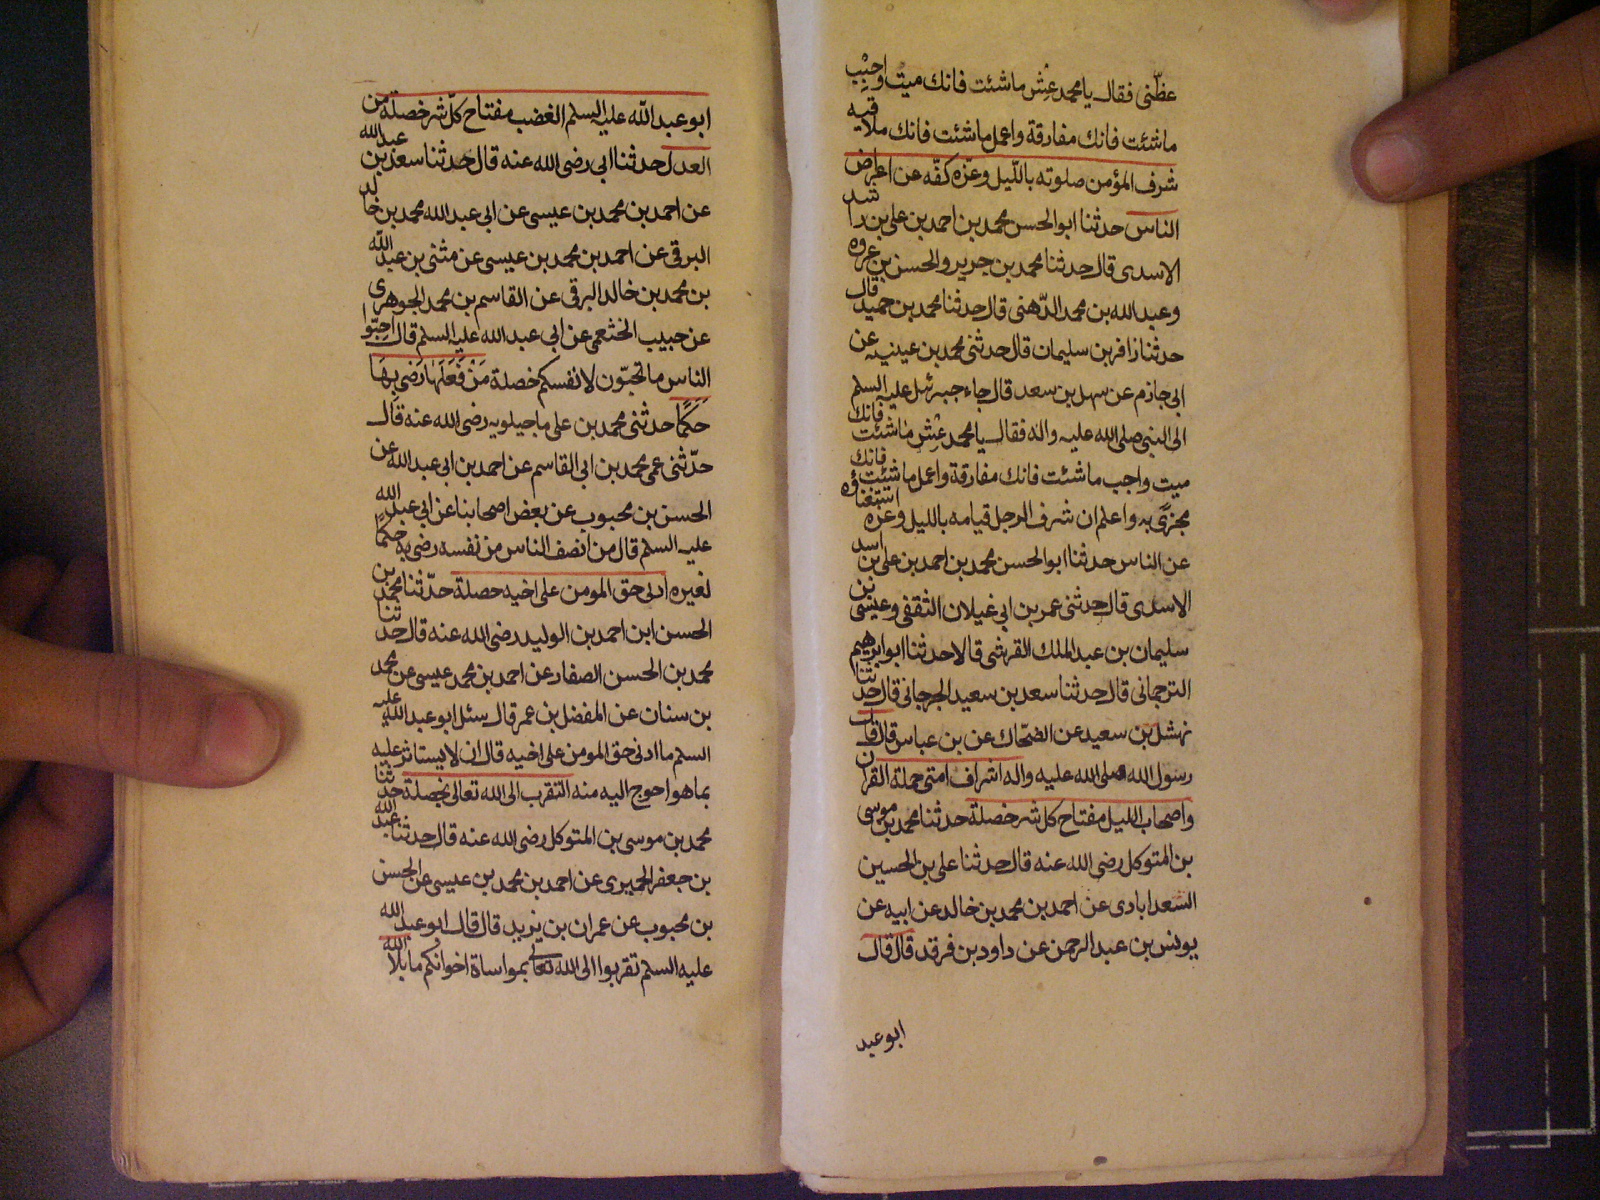 عظنى فقال يا محمد عش ما شئت فانك ميت واحبب
ما شئت فانك مفارقة واعمل ما شئت فانك ملاقيه
شرف المؤمن صلوته بالليل وعزه كفه عن اعراض
الناس حدثنا ابو الحسن محمد بن احمد بن على بن راشد
الاسدى قال حدثنا محمد بن جرير والحسن بن عروه
وعبد الله بن محمد الدهنى قال حدثنا محمد بن حميد قال
حدثنا زافر بن سليمان قال حدثنى محمد بن عيينه عن
ابى حازم عن سهل بن سعد قال جاء جبرئيل عليه السلم
الى النبى صلى الله عليه واله فقال يا محمد عش ما شئت فانك
ميت واحب ما شئت فانك مفارقة واعمل ما شئت فانك
مجزى به واعلم ان شرف الرجل قيامه بالليل وعزه استغناؤه
عن الناس حدثنا ابو الحسن محمد بن احمد بن على بن اسد
الاسدى قال حدثنى عمر بن ابى غيلان الثقفى وعيسى بن
سليمان بن عبد الملك القرشى قالا حدثنا ابو ابرهيم
الترجمانى قال حدثنا سعد بن سعيد الجرجانى قال حدثنا
نهشل بن سعيد عن الضحاك عن بن عباس قال قال
رسول الله صلى الله عليه واله اشراف امتى حملة القران
واصحاب الليل مفتاح كل شر خصلة حدثنا محمد بن موسى
بن المتوكل رضى الله عنه قال حدثنا على بن الحسين
السعدابادى عن احمد بن محمد بن خالد عن ابيه عن
يونس بن عبد الرحمن عن داود بن فرقد قال قال
ابو عبد
ابو عبد الله عليه السلم الغضب مفتاح كل شر خصلة من
العدل حدثنا ابى رضى الله عنه قال حدثنا سعد بن عبد الله
عن احمد بن محمد بن عيسى عن ابى عبد الله محمد بن خالد
البرقى عن احمد بن محمد بن عيسى عن مثنى بن عبد الله
بن محمد بن خالد البرقى عن القاسم بن محمد الجوهرى
عن حبيب الخثعمى عن ابى عبد الله عليه السلم قال احبوا
الناس ما تحبون لانفسكم خصلة من فعلها رضى بها
حكما حدثنى محمد بن على ماجيلويه رضى الله عنه قال
حدثنى عمى محمد بن ابى القاسم عن احمد بن ابى عبد الله عن
الحسن بن محبوب عن بعض اصحابنا عن ابى عبد الله
عليه السلم قال من انصف الناس من نفسه رضى به حكما
لغيره ادنى حق المومن على اخيه خصلة حدثنا محمد بن
الحسن ابن احمد بن الوليد رضى الله عنه قال حدثنا
محمد بن الحسن الصفار عن احمد بن محمد عيسى عن محمد
بن سنان عن المفضل بن عمر قال سئل ابو عبد الله عليه
السلم ما ادنى حق المومن على اخيه قال ان لا يستاثر عليه
بما هو احوج اليه منه التقرب الى الله تعالى بخصلة حدثنا
محمد بن موسى بن المتوكل رضى الله عنه قال حدثنا عبد الله
بن جعفر الحميرى عن احمد بن محمد بن عيسى عن الحسن
بن محبوب عن عمران بن يزيد قال قال ابو عبد الله
عليه السلم تقربوا الى الله تعالى بمواساة اخوانكم